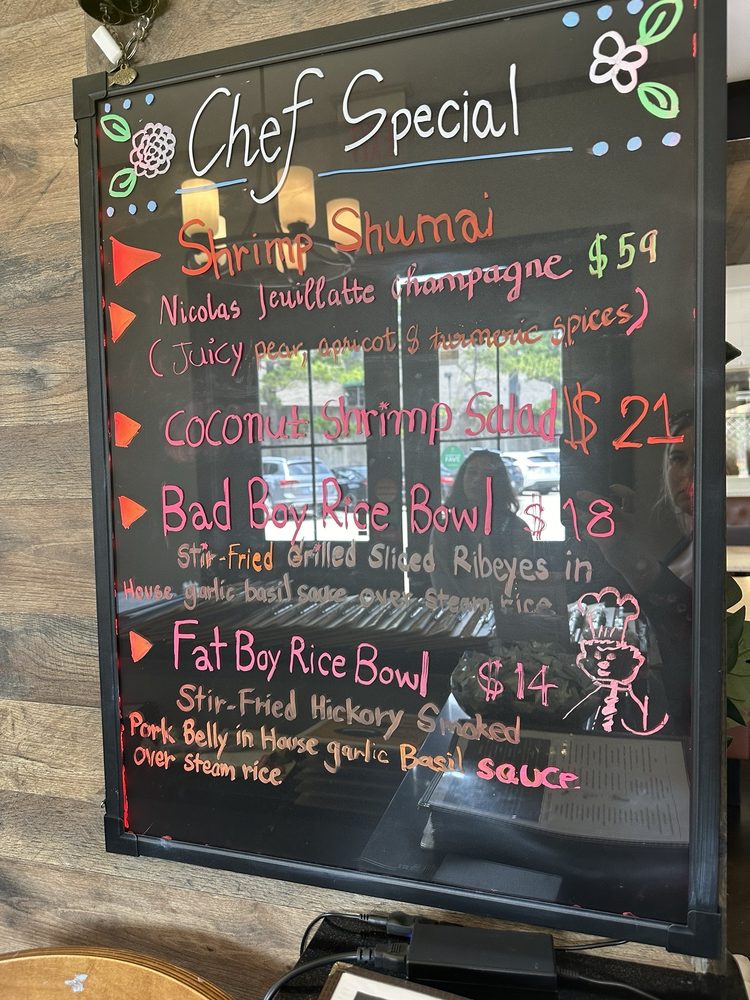 Chef Special
Shrimp Shumai
Nicolas Jeuillatte Champagne $59
(Juicy pear, apricot & turmeric spices)
Coconut Shrimp Salad $21
Bad Boy Rice Bowl $18
Stir-Fried Grilled Sliced Ribeyes in
House garlic basil sauce over steam rice
Fat Boy Rice Bowl $14
Stir-Fried Hickory Smoked
Pork Belly in House garlic Basil sauce
over steam rice